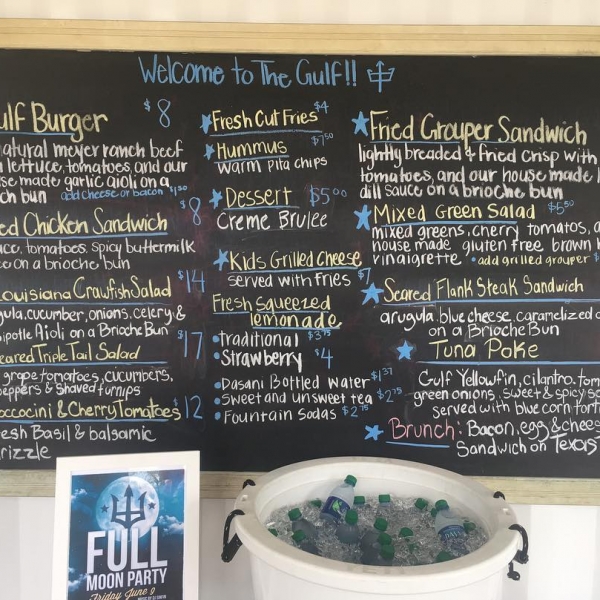 Welcome to The Gulf!!
Burger $8
natural meyer ranch beef
lettuce, tomatoes, and our
made garlic aioli on a
bun add cheese or bacon $1.00
Chicken Sandwich $8
tomatoes, spicy buttermilk
on a brioche bun
Louisiana Crawfish Salad $14
cucumber, onions, celery &
Aioli on a Brioche Bun
Triple Tail Salad $17
grape tomatoes, cucumbers,
peppers & shaved turnips
& Cherry Tomatoes $12
Fresh Basil & balsamic
drizzle
Fresh Cut Fries $4
Hummus $7.50
warm pita chips
Dessert $5.00
Creme Brulee
Kids Grilled Cheese
served with fries $7
Fresh Squeezed
lemonade
• Traditional $3.75
• Strawberry $4
• Dasani Bottled Water $1.37
• Sweet and unsweet tea $2.75
• Fountain Sodas $2.75
Fried Grouper Sandwich
lightly breaded & fried crisp with
tomatoes, and our house made
dill sauce on a brioche bun
Mixed Green Salad $5.50
mixed greens, cherry tomatoes,
house made gluten free brown
vinaigrette • add grilled grouper $
Seared Flank Steak Sandwich
arugula, blue cheese, caramelized
on a Brioche Bun
Tuna Poke
Gulf Yellowfin, cilantro,
green onions, sweet & spicy
served with blue corn
Brunch: Bacon, egg &
Sandwich on Texas
FULL
MOON PARTY
Friday June 9